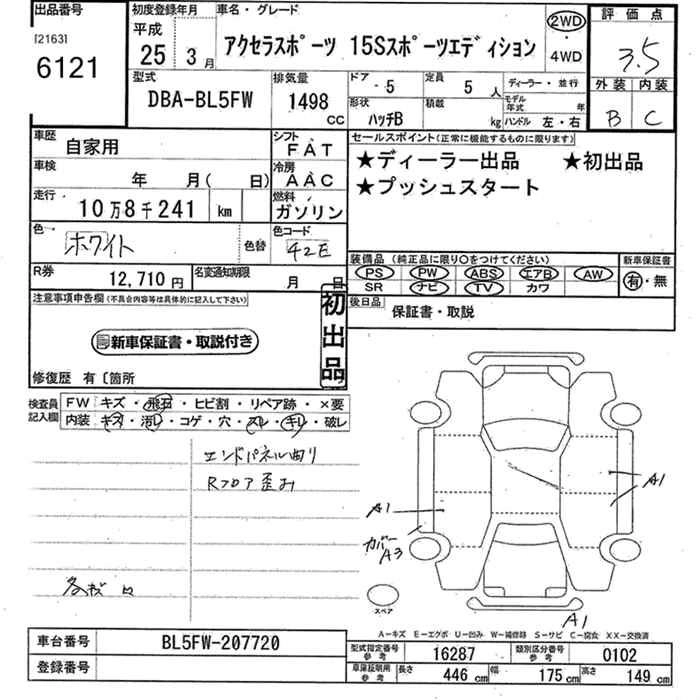 出品番号
[2163]
6121
初度登録年月
平成
25 3月
車名・グレード
アクセラスポーツ 15Sスポーツエディション
2WD
・
4WD
評価点
3.5
外装 内装
B C
型式
DBA-BL5FW
排気量
1498
cc
ドア・ 5
形状
ハッチB
定員 5 人
積載 kg
ディーラー・並行
モデル年式 年
ハンドル 左・右
車歴
自家用
シフト
FAT
車検
年 月( 日)
冷房
AAC
走行
10万8千241 km
燃料
ガソリン
色
ホワイト
色替
色コード
42E
R券
12,710円
名変通知期限
月 日
セールスポイント(正常に機能するものに限ります)
★ディーラー出品 ★初出品
★プッシュスタート
装備品 (純正品に限り○をつけてください)
PS PW ABS エアB AW
SR ナビ TV カワ
新車保証書
有・無
後日品
保証書・取説
注意事項申告欄(不具合内容等は具体的に記入して下さい)
新車保証書・取説付き
初出品
修復歴 有〔箇所
検査員
記入欄
FW キズ・飛石・ヒビ割・リペア跡・×要
内装 キズ・汚レ・コゲ・穴・スレ・キレ・破レ
エンドパネル曲り
Rフロア歪み
A1
A1
カバー
A3
A1
スペア
A-キズ E-エグボ U-凹み W-補修跡 S-サビ C-腐食 XX-交換済
車台番号
BL5FW-207720
登録番号
型式指定番号
参考
16287
類別区分番号
参考
0102
車庫証明用
参考
長さ 446 cm 幅 175 cm 高さ 149 cm